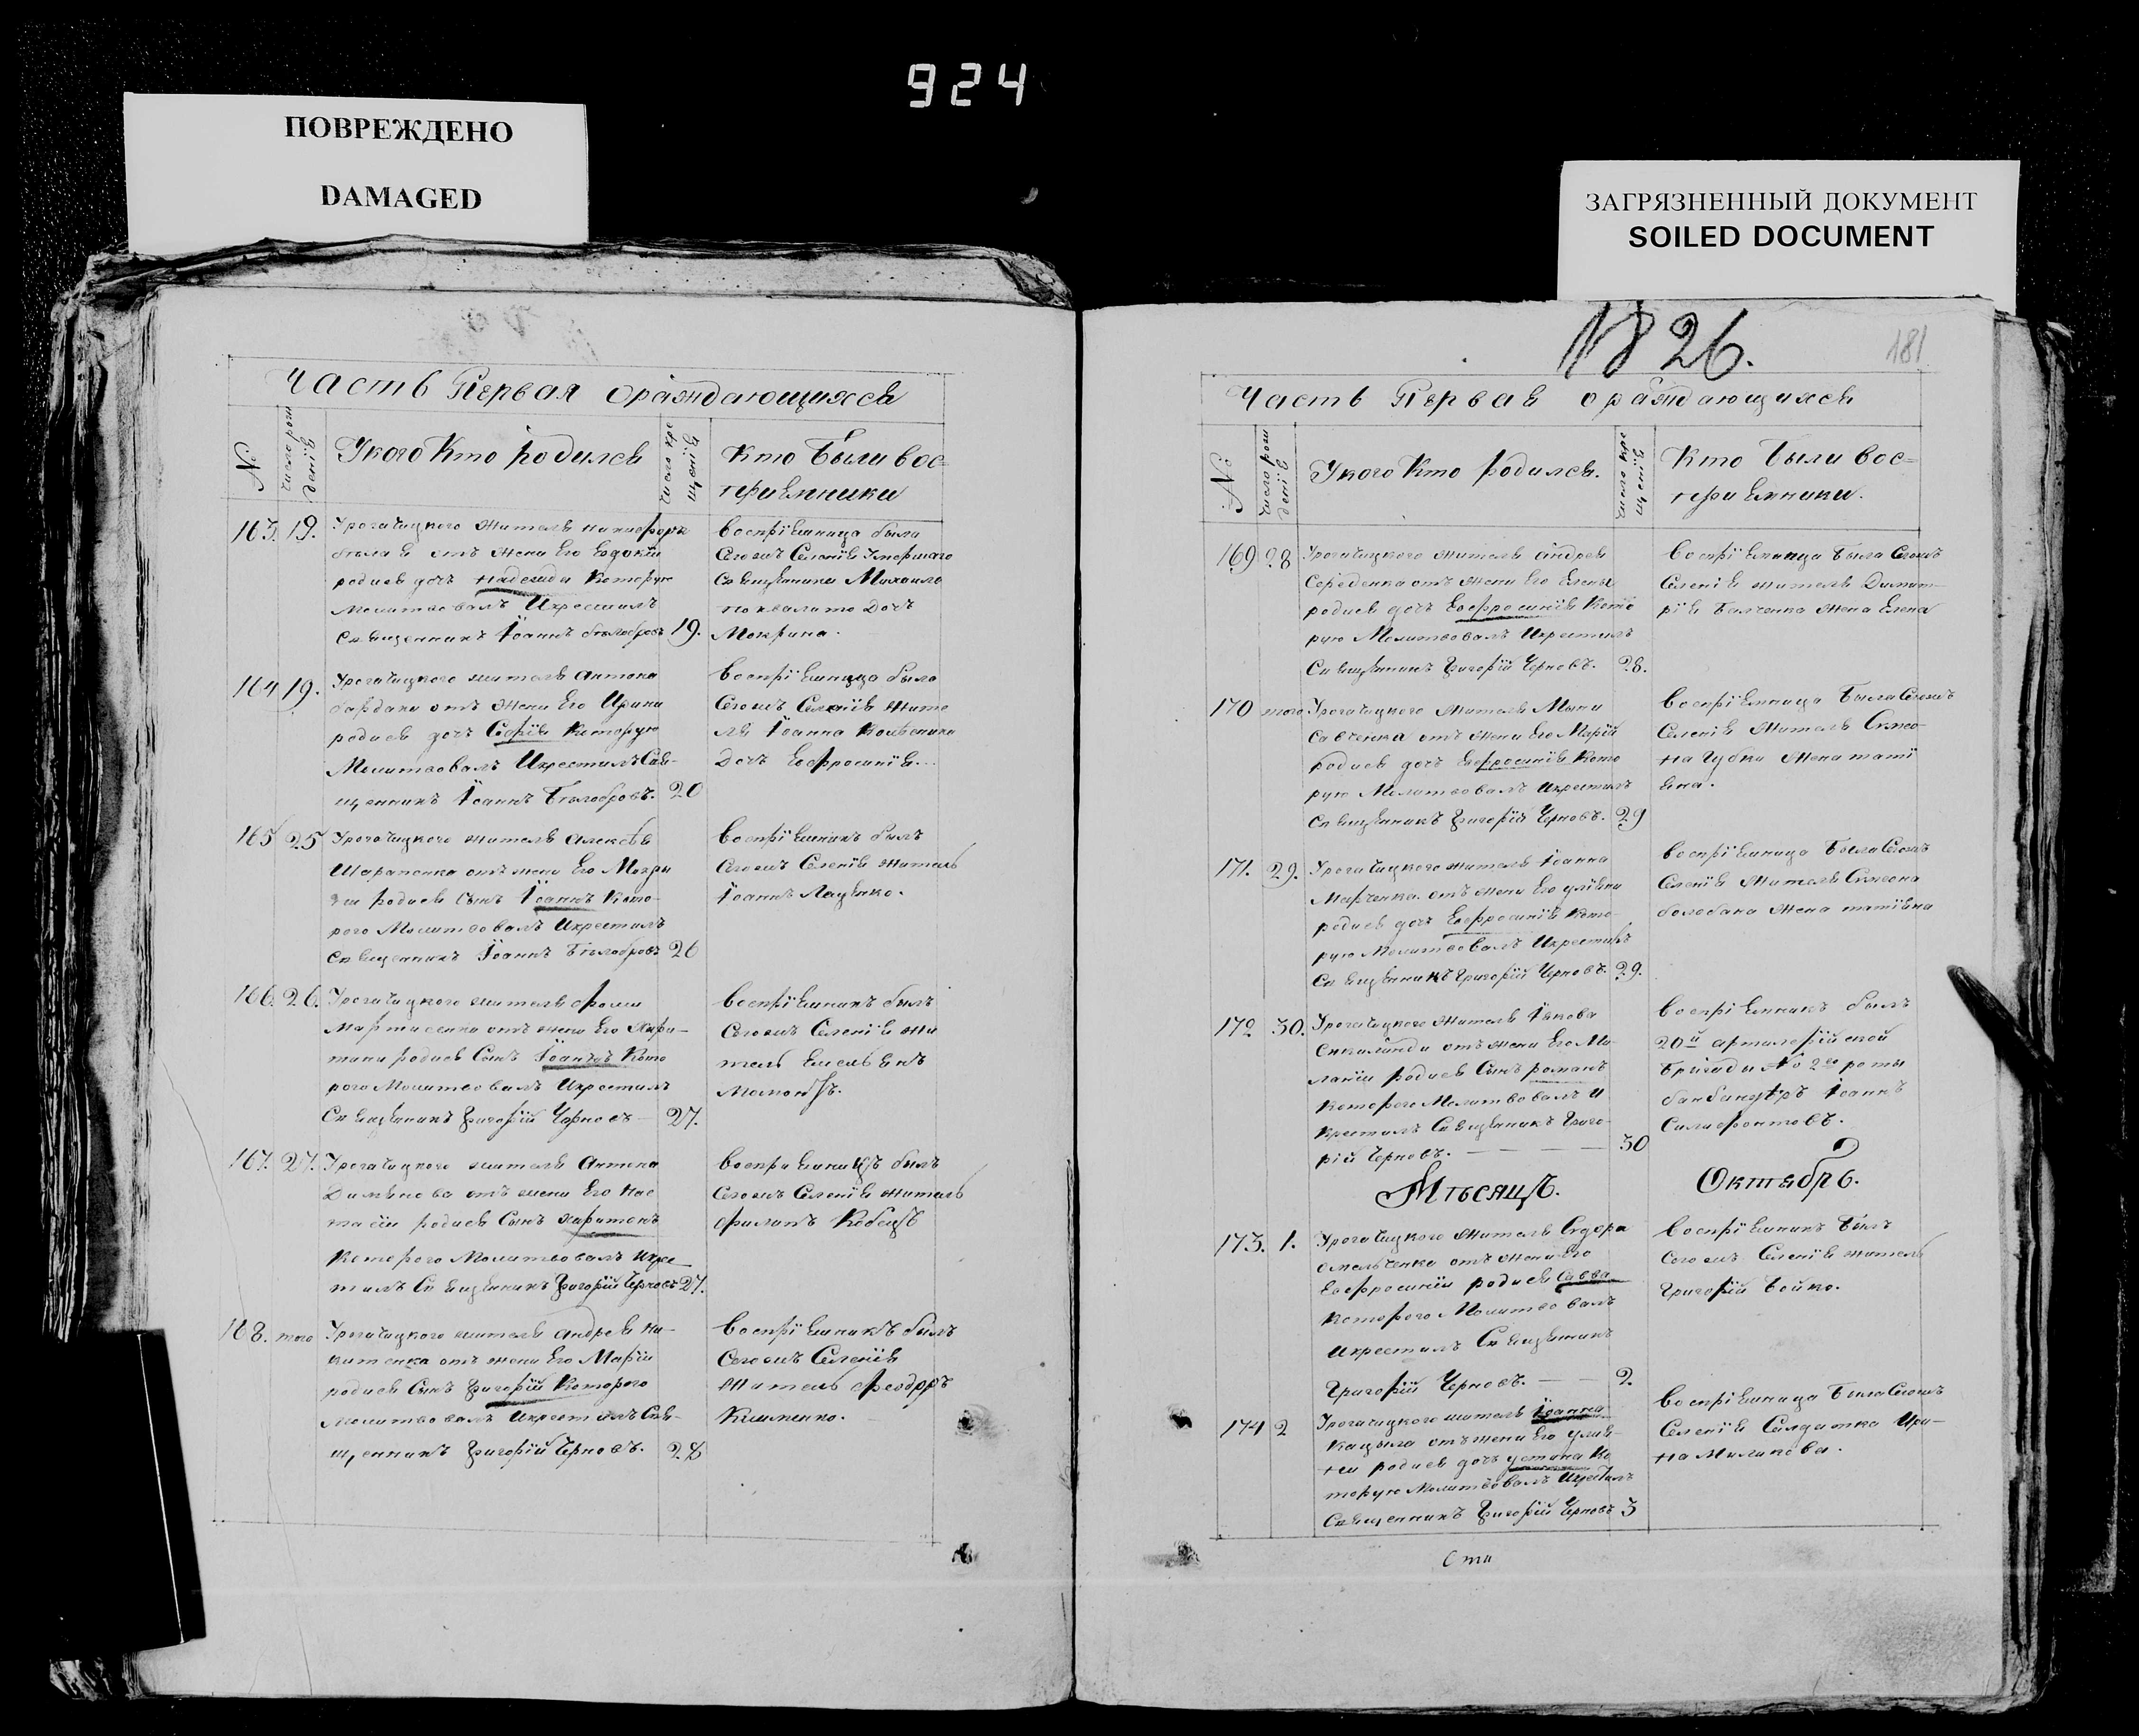 924
ПОВРЕЖДЕНО
DAMAGED
ЗАГРЯЗНЕННЫЙ ДОКУМЕНТ
SOILED DOCUMENT
Часть Первая ораждающихся
№
число рожденія
Укого Кто родился
число крещенія
Кто были вос=
пріемники
163. 19.
Урогачицкого жителя никифора
отъ жени Его Евдокіи
родися дочъ надежда Которую
Молитвовалъ Икрестилъ
Священникъ Іоаннъ белобровъ 19.
воспріемница была
Сегожъ Селенія Умершаго
Священника Михаила
дочъ
Мокрина.
164 19.
Урогачицкого жителя антона
отъ жени Его Ирини
родися дочъ Софія Которую
Молитвовалъ ИкрестилъСвя-
щенникъ Іоаннъ Белобровъ. 20
воспріемница была
Сегожъ Селенія жите
ля Іоанна
Дочъ Евфросинія.
165 25
Урогачицкого жителя алексея
Шарапенка отъ жени Его Мотри
ни родися Сынъ Іоаннъ Кото-
рого Молитвовалъ Икрестилъ
Священникъ Іоаннъ Белобровъ 26
воспріемникъ былъ
Сегожъ Селенія житель
Іоаннъ Лаценко.
166. 26.
Урогачицкого жителя фоми
отъ жени Его Хари-
тини родися Сынъ Іоаннъ Кото
рого Молитвовалъ Икрестилъ
Священникъ Григорій Черновъ 27.
воспріемникъ былъ
Сегожъ Селенія жи
тель Емельянъ
167. 27.
Урогачицкого жителя Антона
отъ жени Его нас
тасіи родися Сынъ харитонъ
Которого Молитвовалъ Икре
стилъ Священникъ Григорій Черновъ 27.
былъ
Сегожъ Селенія житель
филипъ
168. того
Урогачицкого жителя андрея ни-
китенка отъ жени Его Маріи
родися Сынъ Григорій Которого
Молитвовалъ Икрестилъ Свя-
щенникъ Григорій Черновъ. 28
воспріемникъ былъ
Сегожъ Селенія
житель феодоръ
Клименко.
1826.
181
Часть Первая ораждающихся
№
число рожденія
Укого Кто родился.
число крещенія
Кто были вос=
пріемники.
169 28
Урогачицкого жителя андрея
Середенка отъ жени Его Елены
родися дочъ Евфросинія Кото
рую Молитвовалъ Икрестилъ
Священникъ Григорій Черновъ. 28.
воспріемница была Сегожъ
Селенія жителя Димит-
рія жена Елена
170 того
Урогачицкого жителя Мины
Савченка отъ жени Его Маріи
родися дочъ Евфросинія Кото
рую Молитвовалъ Икрестилъ
Священникъ Григорій Черновъ. 29
воспріемница Была Сегожъ
Селенія жителя Симео-
на Губки жена тати
яна.
171. 29.
Урогачицкого жителя Іоанна
Марченка. отъ жени Его уліяни
родися дочъ Евфросинія Кото-
рую Молитвовалъ Икрестилъ
Священникъ Григорій Черновъ. 29.
воспріемница Была Сегожъ
Селенія жителя Симеона
болобана жена татіяна
172 30.
Урогачицкого жителя Іякова
отъ жени Его Ме-
ланіи родися Сынъ романъ
Которого Молитвовалъ И
крестилъ Священникъ Григо-
рій Черновъ. 30
воспріемникъ былъ
20й артилерійской
бригады № 2го роты
Іоаннъ
Мѣсяцъ. Октябрь.
173. 1.
Урогачицкого жителя Сидора
омельченка отъ жени Его
Евфросиніи родися Савва
Которого Молитвовалъ
Икрестилъ Священникъ
Григорій Черновъ. 2.
воспріемникъ Былъ
Сегожъ Селенія житель
Григорій Бойко.
174 2
Урогачицкого жителя Іоанна
отъ жени Его улия-
ни родися дочъ устина Ко
торую Молитвовалъ Икрестилъ
Священникъ Григорій Черновъ 3
воспріемница Была Сегожъ
Селенія Салдатка Ири-
на Миликова.